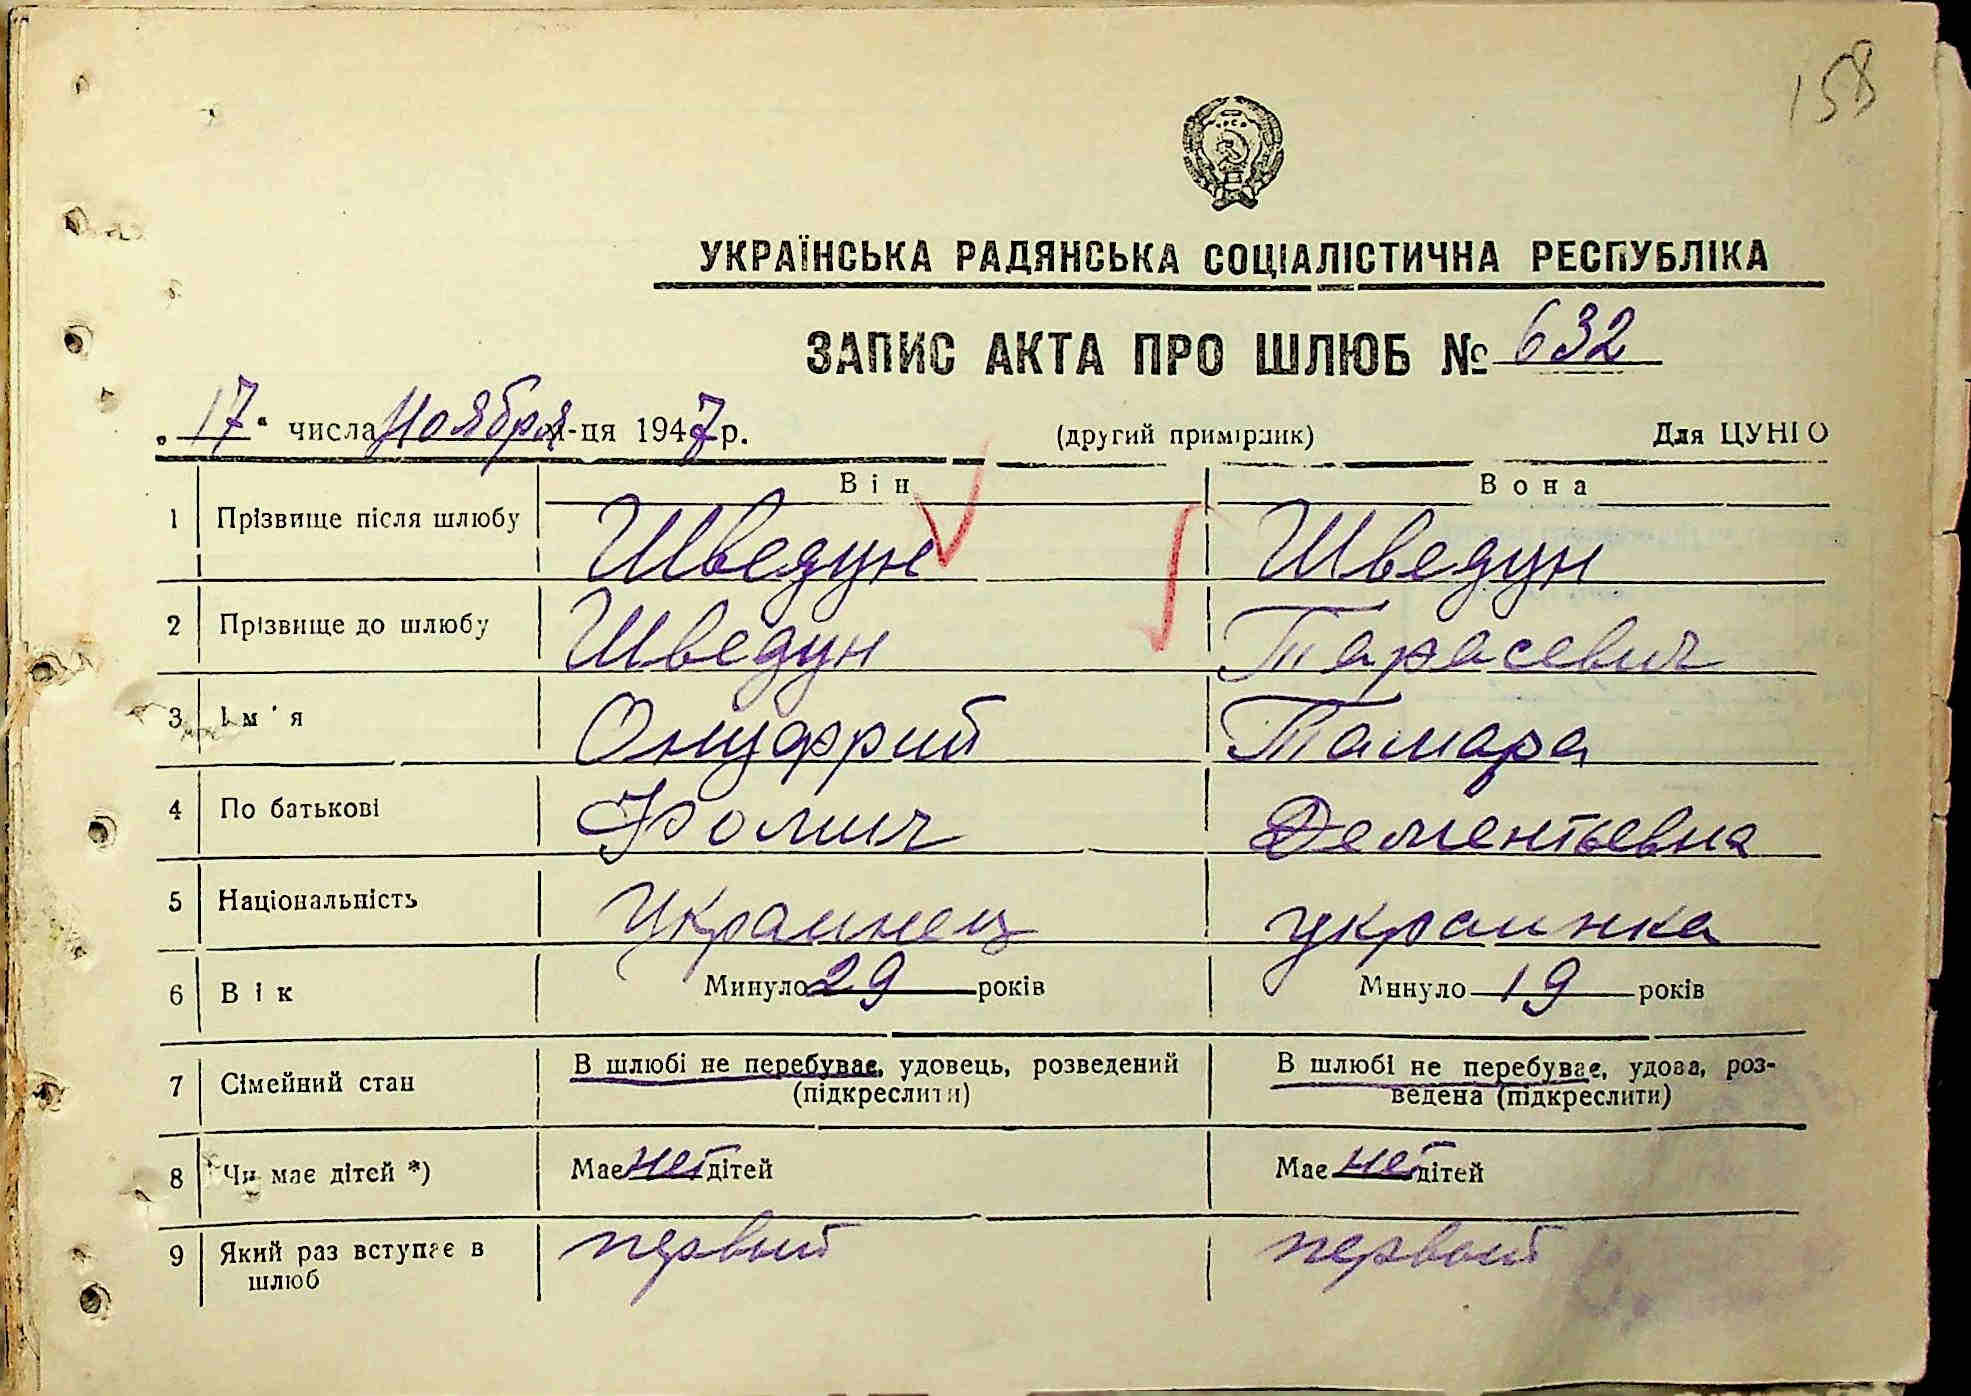 158
УКРАЇНСЬКА РАДЯНСЬКА СОЦІАЛІСТИЧНА РЕСПУБЛІКА
ЗАПИС АКТА ПРО ШЛЮБ № 632
„17“ числа Ноября м-ця 1947 р. (другий примірник) Для ЦУНГО
Він Вона
1 Прізвище після шлюбу Шведун Шведун
2 Прізвище до шлюбу Шведун Тарасевич
3 Ім'я Онуфрий Тамара
4 По батькові Фомич Дементьевна
5 Національність Украинец украинка
6 Вік Минуло 29 років Минуло 19 років
7 Сімейний стан В шлюбі не перебуває, удовець, розведений (підкреслити) В шлюбі не перебуває, удова, роз-
ведена (підкреслити)
8 Чи має дітей *) Має нет дітей Має нет дітей
9 Який раз вступає в первый первый
шлюб